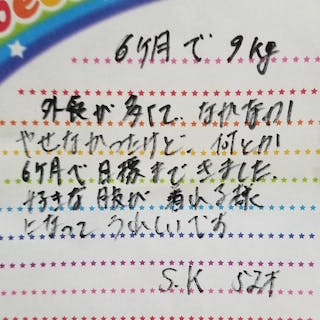 6ヶ月で9kg
外食が多くて、なかなか
やせなかったけど、何とか
6ヶ月で目標まできました。
好きな服が着れる様
になってうれしいです
S.K 52才